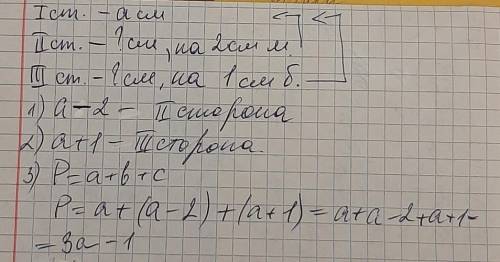 I ст. - а см
II ст. - ? см, на 2 см м.
III ст. - ? см, на 1 см б.
1) а - 2 - II сторона
2) а + 1 - III сторона.
3) P = a + b + c
P = a + (a - 2) + (a + 1) = a + a - 2 + a + 1 =
= 3a - 1